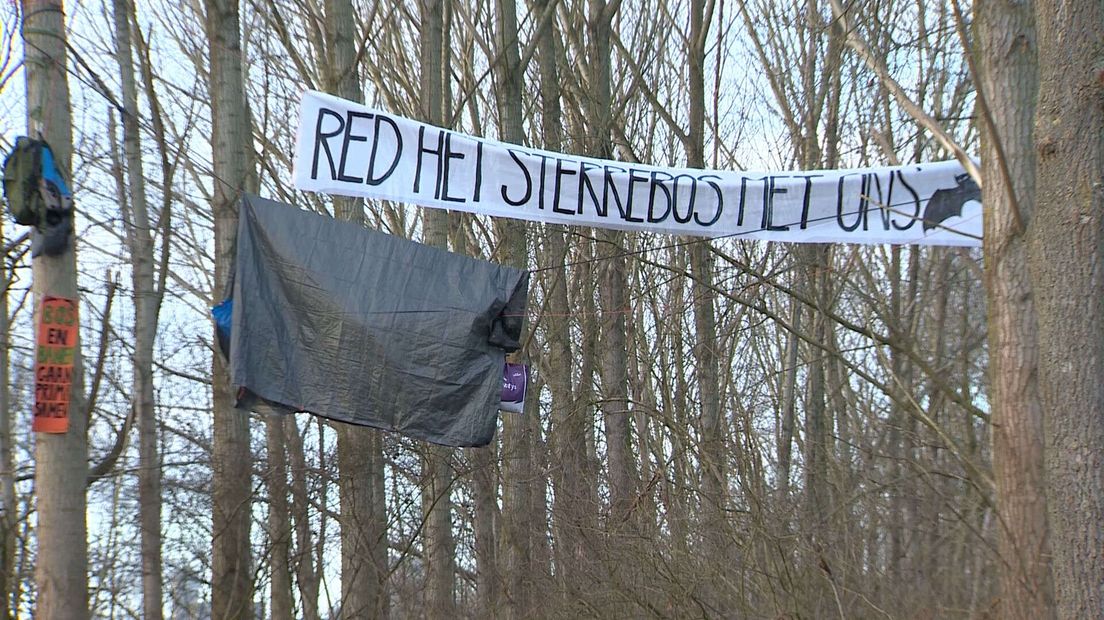 RED HET STERREBOS MET ONS
BOS
EN
BANEN
GAAN
PRIMA
SAMEN